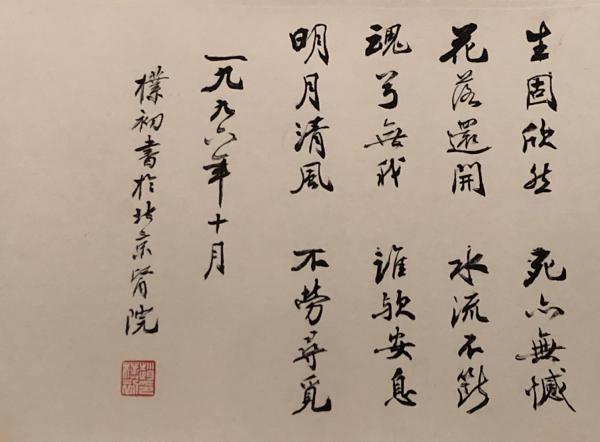 生固欣然 死亦無憾
花落還開 水流不斷
魂兮無我 誰歟安息
明月清風 不勞尋覓
一九九六年十月
樸初書於北京醫院